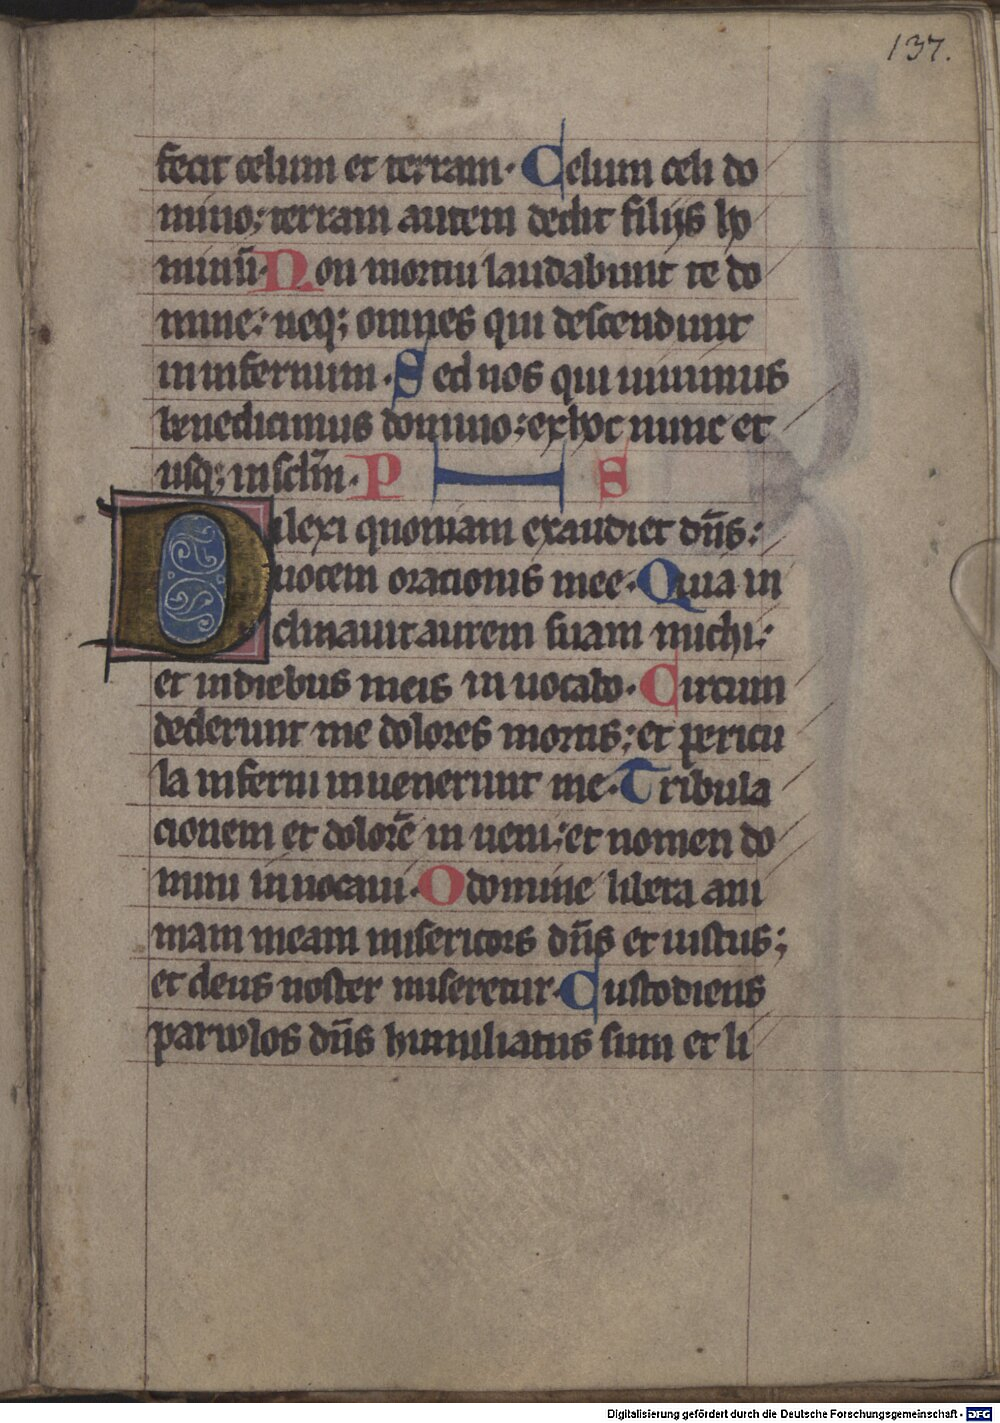 137.
fecit celum et terram. Celum celi do
mino; terram autem dedit filijs ho
minū. Non mortui laudabunt te do
mine: neq; omnes qui descendunt
in infernum. Sed nos qui uiuimus
benedicimus domino: ex hoc nunc et
usq; in sclm̄. P S
Dilexi quoniam exaudiet dn̄s:
uocem orationis mee. Quia in
clinauit aurem suam michi:
et in diebus meis inuocabo. Circum
dederunt me dolores mortis; et pericu
la inferni inuenerunt me. Tribula
cionem et dolorē inueni: et nomen do
mini inuocaui. O domine libera ani
mam meam misericors dn̄s et iustus;
et deus noster miseretur. Custodiens
paruulos dn̄s humiliatus sum et li
Digitalisierung gefördert durch die Deutsche Forschungsgemeinschaft - DFG